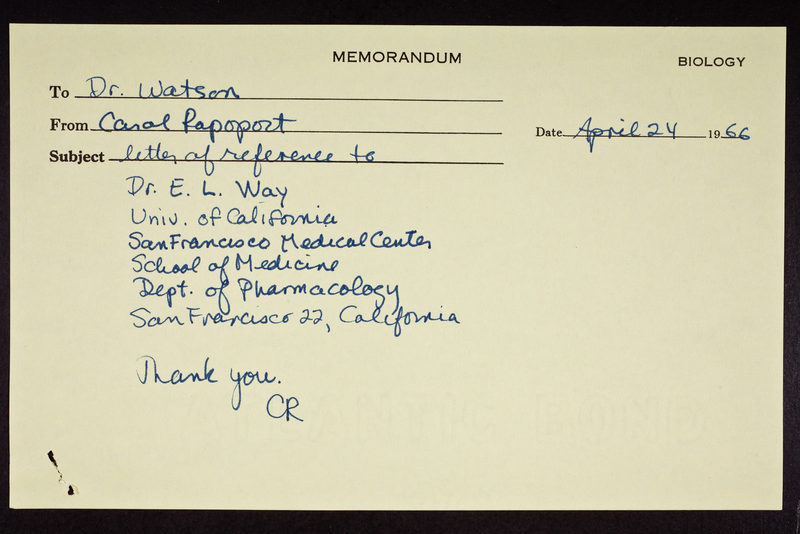 MEMORANDUM
BIOLOGY
To Dr. Watson
From Carol Rapoport
Date April 24 1966
Subject letter of reference to
Dr. E. L. Way
Univ. of California
San Francisco Medical Center
School of Medicine
Dept. of Pharmacology
San Francisco 22, California
Thank you.
CR